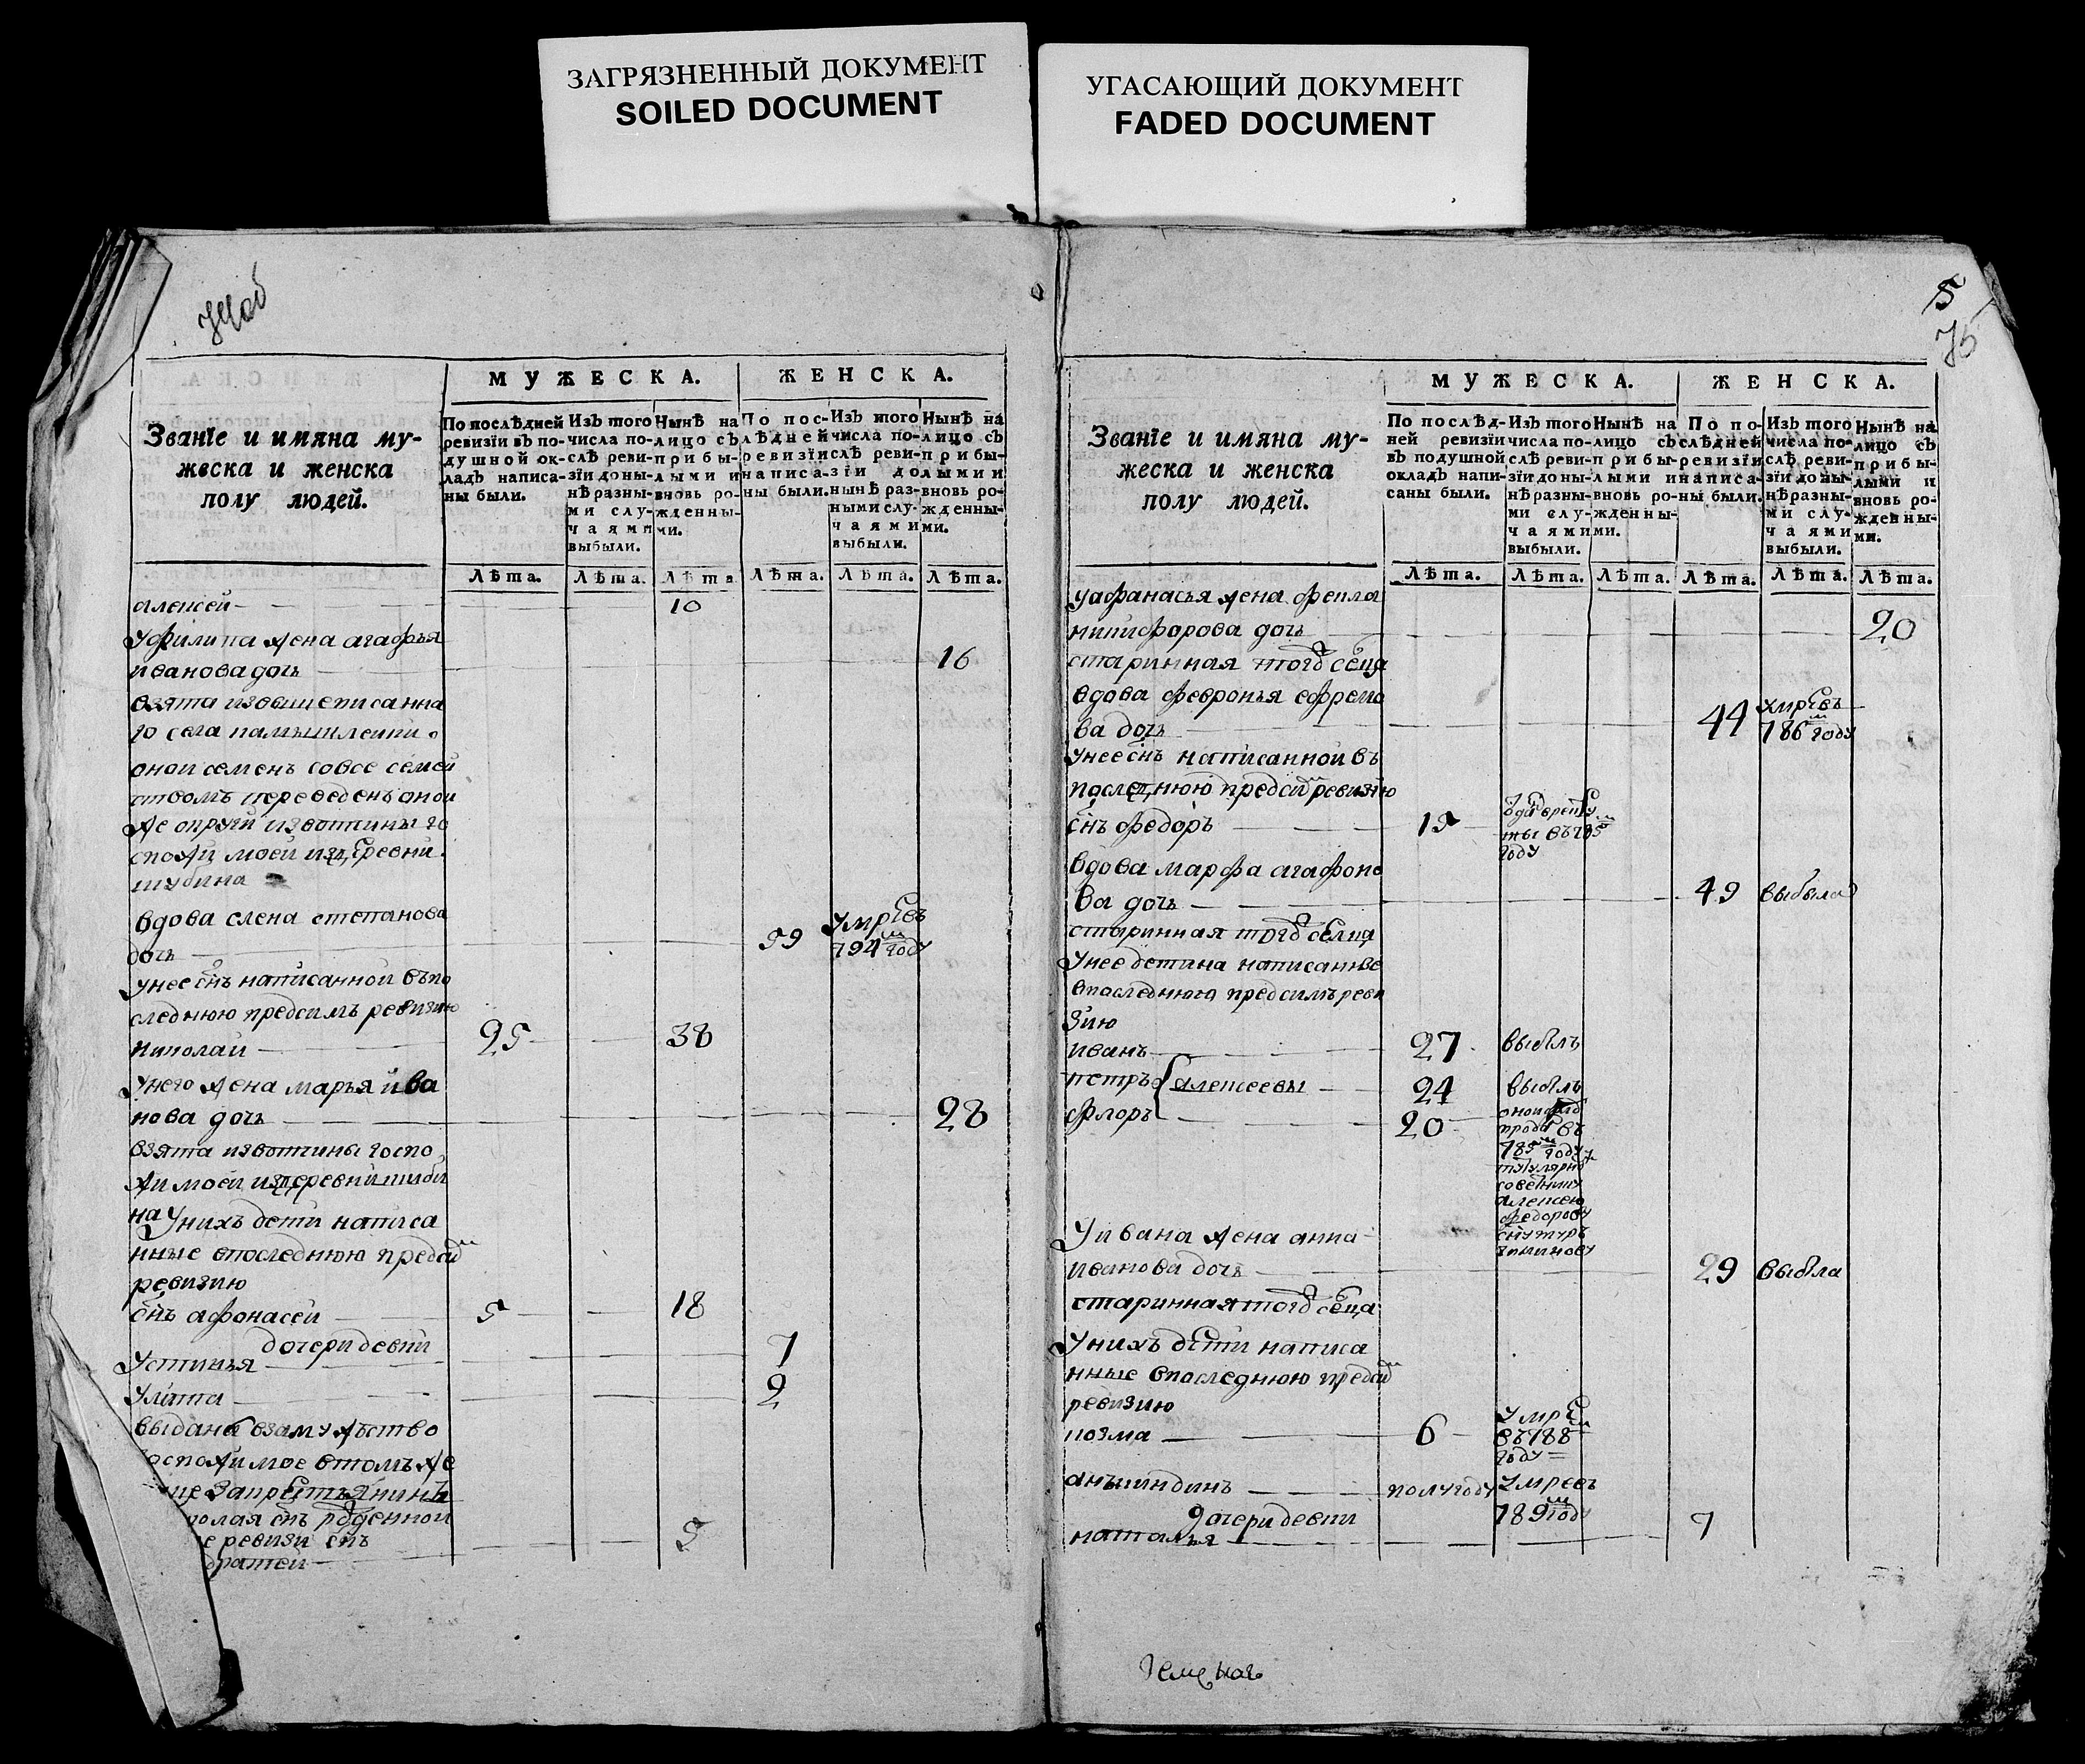 ЗАГРЯЗНЕННЫЙ ДОКУМЕНТ
SOILED DOCUMENT
УГАСАЮЩИЙ ДОКУМЕНТ
FADED DOCUMENT
74об
МУЖЕСКА.
ЖЕНСКА.
Званїе и имяна му-
жеска и женска
полу людей.
По послѣдней
ревизїи въ по-
душной ок-
ладъ написа-
ны были.
Изъ того
числа по-
слѣ реви-
зїи доны-
нѣ разны-
ми слу-
чаями
выбыли.
Нынѣ на
лицо съ
прибы-
лыми и
вновь ро-
жденны-
ми.
По пос-
лѣдней
ревизїи
написа-
ны были.
Изъ того
числа по-
слѣ реви-
зїи до
нынѣ раз-
ными слу-
чаями
выбыли.
Нынѣ на
лицо съ
прибы-
лыми и
вновь ро-
жденны-
ми.
Лѣта. Лѣта. Лѣта. Лѣта. Лѣта. Лѣта.
алексей 10
уфилипа жена агафья
иванова дочь 16
взята извышеписанна
го села
оной семенъ совсе семей
ствомъ переведенъ оной
же округи извотчины го
спожи моей издеревни
шубина
вдова елена степанова
дочь 59 умре въ
794м году
унее снъ написанной въпо
следнюю предсимъ ревизию
николай 25 38
унего жена марья ива
нова дочь 28
взята извотчины госпо
жи моей издеревни шуби
на
унихъ дети написа
нные впоследнюю предсим
ревизию
снъ афонасей 5 18
дочери девки
устинья 7
улита 2
выданы взамужъство
госпожи мое втомъ же
снъ рожденной
ревизи снъ
5
5
75
МУЖЕСКА.
ЖЕНСКА.
Званїе и имяна му-
жеска и женска
полу людей.
По послѣд-
ней ревизїи
въ подушной
окладъ напи-
саны были.
Изъ того
числа по-
слѣ реви-
зїи доны-
нѣ разны-
ми слу-
чаями
выбыли.
Нынѣ на
лицо съ
прибы-
лыми и
вновь ро-
жденны-
ми.
По по-
слѣдней
ревизїи
написа-
ны были.
Изъ того
числа по-
слѣ реви-
зїи доны-
нѣ разны-
ми слу-
чаями
выбыли.
Нынѣ на
лицо съ
прибы-
лыми и
вновь ро-
жденны-
ми.
Лѣта. Лѣта. Лѣта. Лѣта. Лѣта. Лѣта.
уафанасья жена фекла
никифорова дочь 20
старинная тогож селца
вдова февронья ефремо
ва дочь 44 умре въ
786м году
унее снъ написанной въ
последнюю предсим ревизию
снъ федоръ 15
году
вдова марфа агафоно
ва дочь 49 выбыла
старинная тогож селца
унее детина написанные
впоследнюю предсимъ реви
зию
иванъ 27 выбылъ
петръ алексеевы 24 выбылъ
флоръ 20
оной
продан въ
785м году
титулярно
советнику
алексею
федорову
сну
уивана жена анна
иванова дочь 29 выбыла
старинная тогож селца
унихъ дети написа
нные впоследнюю предсим
ревизию
козма 6 умре
въ 788м
году
аникиндинъ полугоду умре въ
789м году
дочери девки
наталья 7